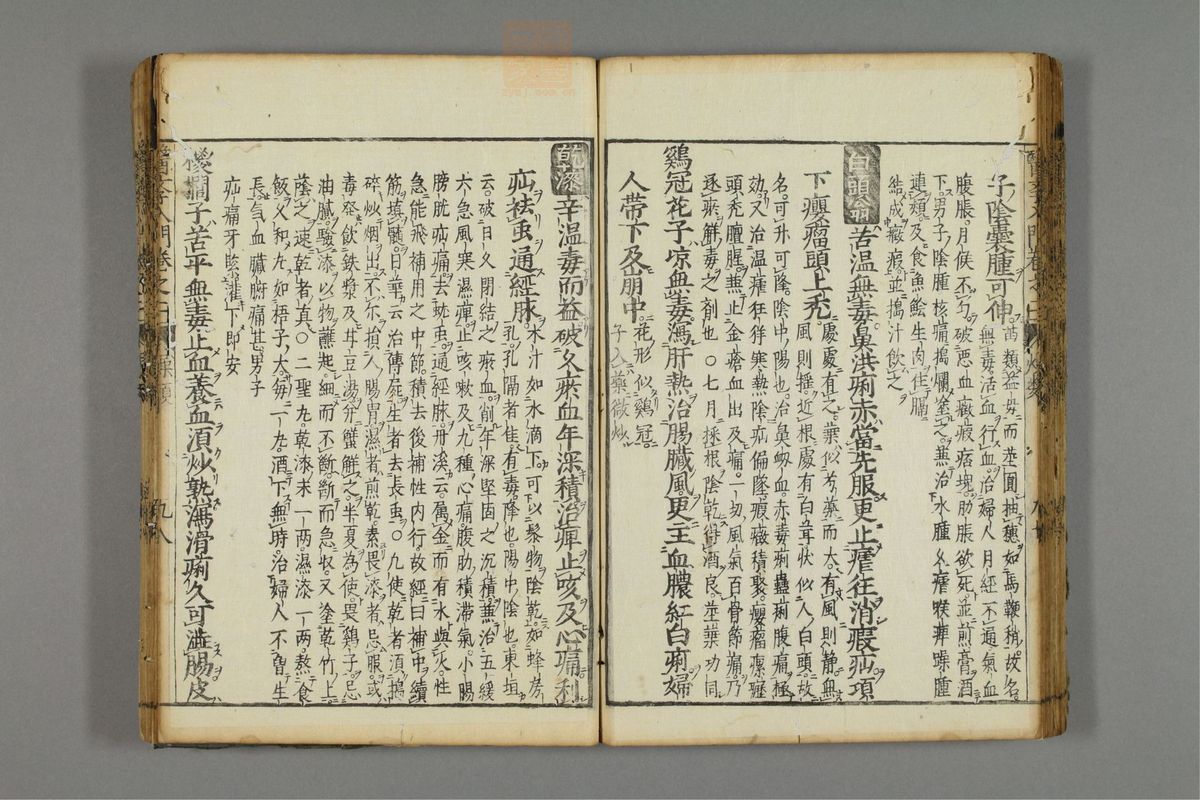 子陰囊腫可伸
苗類益母而莖圓抽穗如馬鞭稍故名
無毒活血行血治婦人月經不通氣血
腹脹月候不勻破惡血癥瘕痞塊肋脹欲死並煎膏酒
下男子陰腫核痛搗爛塗之兼治水腫久瘧喉痺躁腫
連類及食魚鱠生肉住膈
結成癥瘕並搗汁飲之
白頭翁苦溫無毒鼻洪痢赤當先服更止瘧狂消瘕疝項
下癭瘤頭上禿
處處有之葉似芍藥而大有風則靜無
風則搖近根處有白茸狀似人白頭故
名可升可降陰中陽也治鼻衂血赤毒痢蠱痢腹痛極
効又治溫瘧狂狂寒熱陰疝偏墜瘕癥積聚癭瘤瘰癧
頭禿膻腥兼止金瘡血出及痛一切風氣百骨節痛乃
逐瘀解毒之劑也○七月採根陰乾得酒良莖葉功同
鷄冠花子凉無毒瀉肝熱治腸臟風更主血膿紅白痢婦
人帶下及崩中
花形似鷄冠
子入藥微炒
乾漆辛溫毒而益破久瘀血年深積治痺止咳及心痛利
疝祛䖝通經脉
木汁如水滴下可以髹物陰乾如蜂房
孔孔隔者佳有毒降也陽中陰也東垣
云破日久閉結之瘀血削年深堅固之沉積兼治五緩
六急風寒濕痺止咳嗽及九種心痛腹肋積滯氣小腸
膀胱疝痛去蚘䖝通經脉丹溪云属金而有水與火性
急能飛補用之中節積去後補性内行故經曰補中續
筋填髓日華云治傳屍生者去長䖝○九使乾者須搗
碎炒烟出不尓損人腸胃濕者煎乾素畏漆者忌服或
毒發飲鉄漿及耳豆湯并蟹解之半夏為使畏鷄子忌
油膩驗漆以物蘸起細而不斷斷而急收又塗乾竹上
蔭之速乾者真○二聖丸乾漆末一兩濕漆一兩熬食
飯久和丸如梧子大每一丸酒下無時治婦人不曾生
長氣血臟腑痛甚男子
疝痛牙
下即安
櫻
子苦平無毒止血養血須炒熟瀉滑痢久可澁腸皮